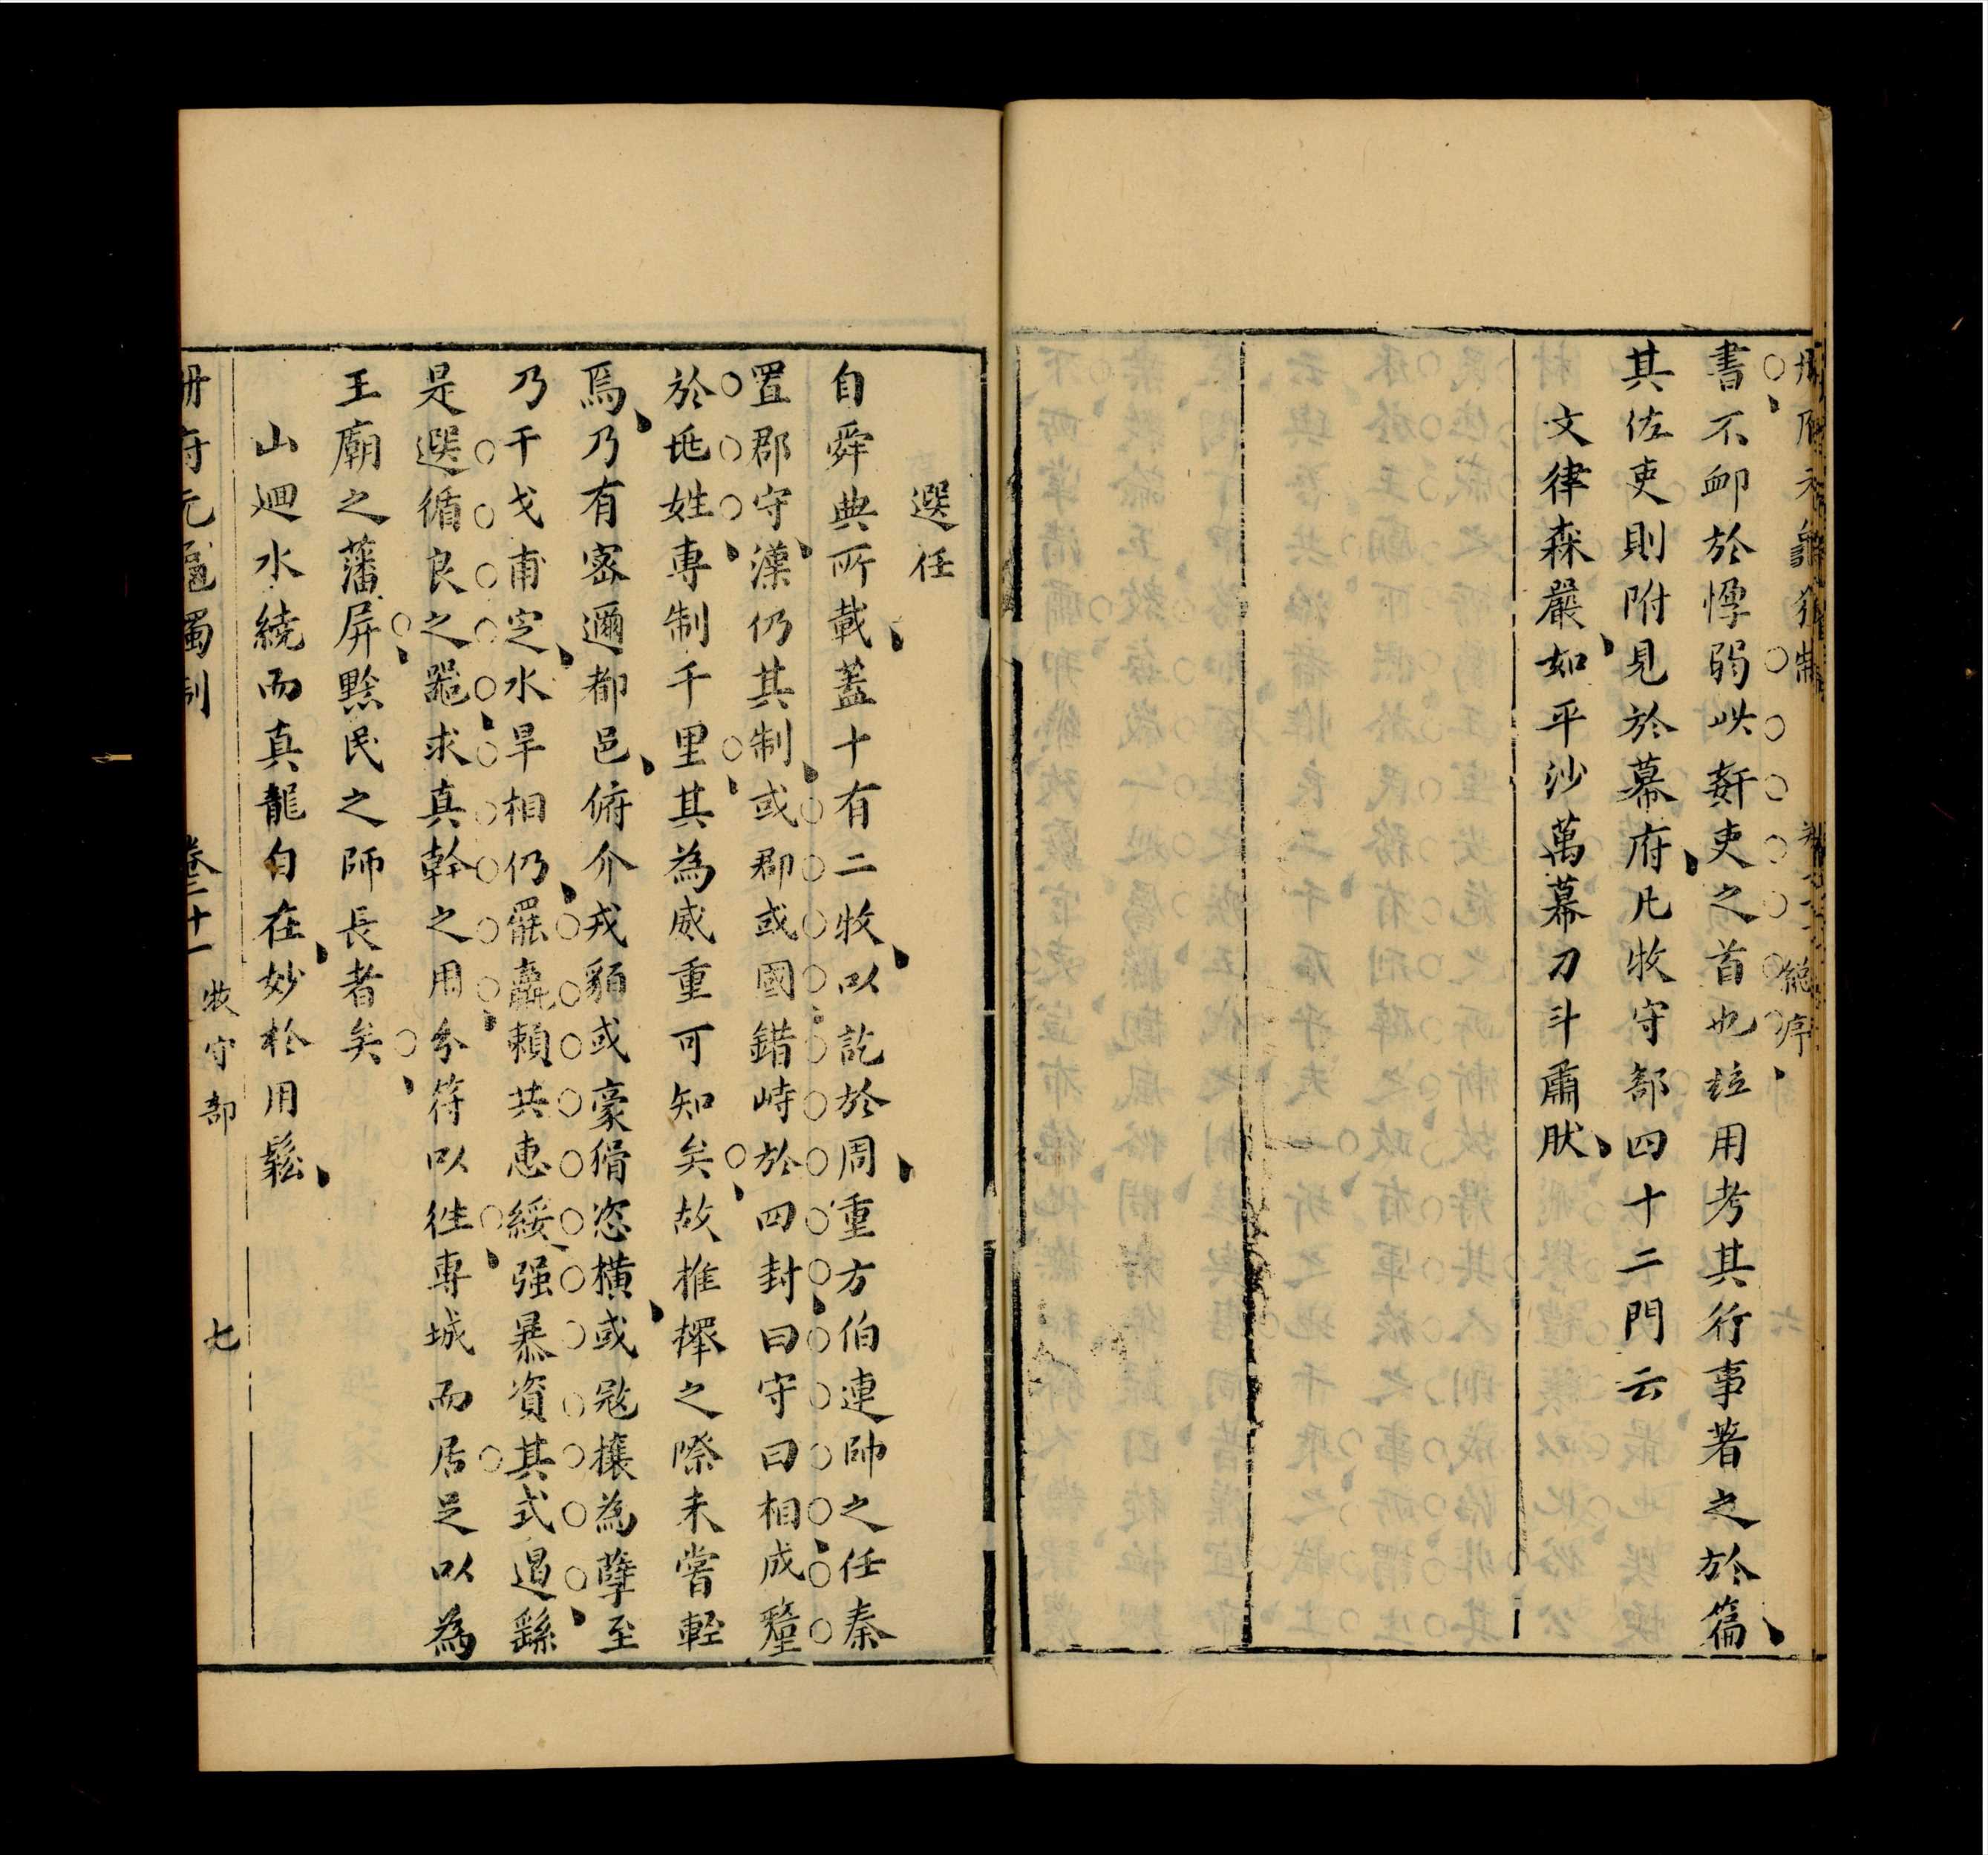 書不䘏於惸弱此姧吏之首也竝用考其行事著之於篇
其佐吏則附見於幕府凡牧守部四十二門云
文律森嚴如平沙萬幕刀斗肅肰
選任
自舜典所載蓋十有二牧以訖於周重方伯連帥之任秦
置郡守漢仍其制或郡或國錯峙於四封曰守曰相成釐
於㐌姓專制千里其為威重可知矣故推擇之際未嘗輕
焉乃有密邇都邑俯介戎貊或豪猾恣橫或寇攘為孽至
乃干戈甫定水旱相仍罷羸賴其惠綏强暴資其式遏繇
是選循良之噐求真幹之用分符以徃專城而居足以為
王廟之藩屏黔民之師長者矣
山廻水繞而真龍自在妙於用鬆
冊府元龜獨制 卷二十一 牧守部 七